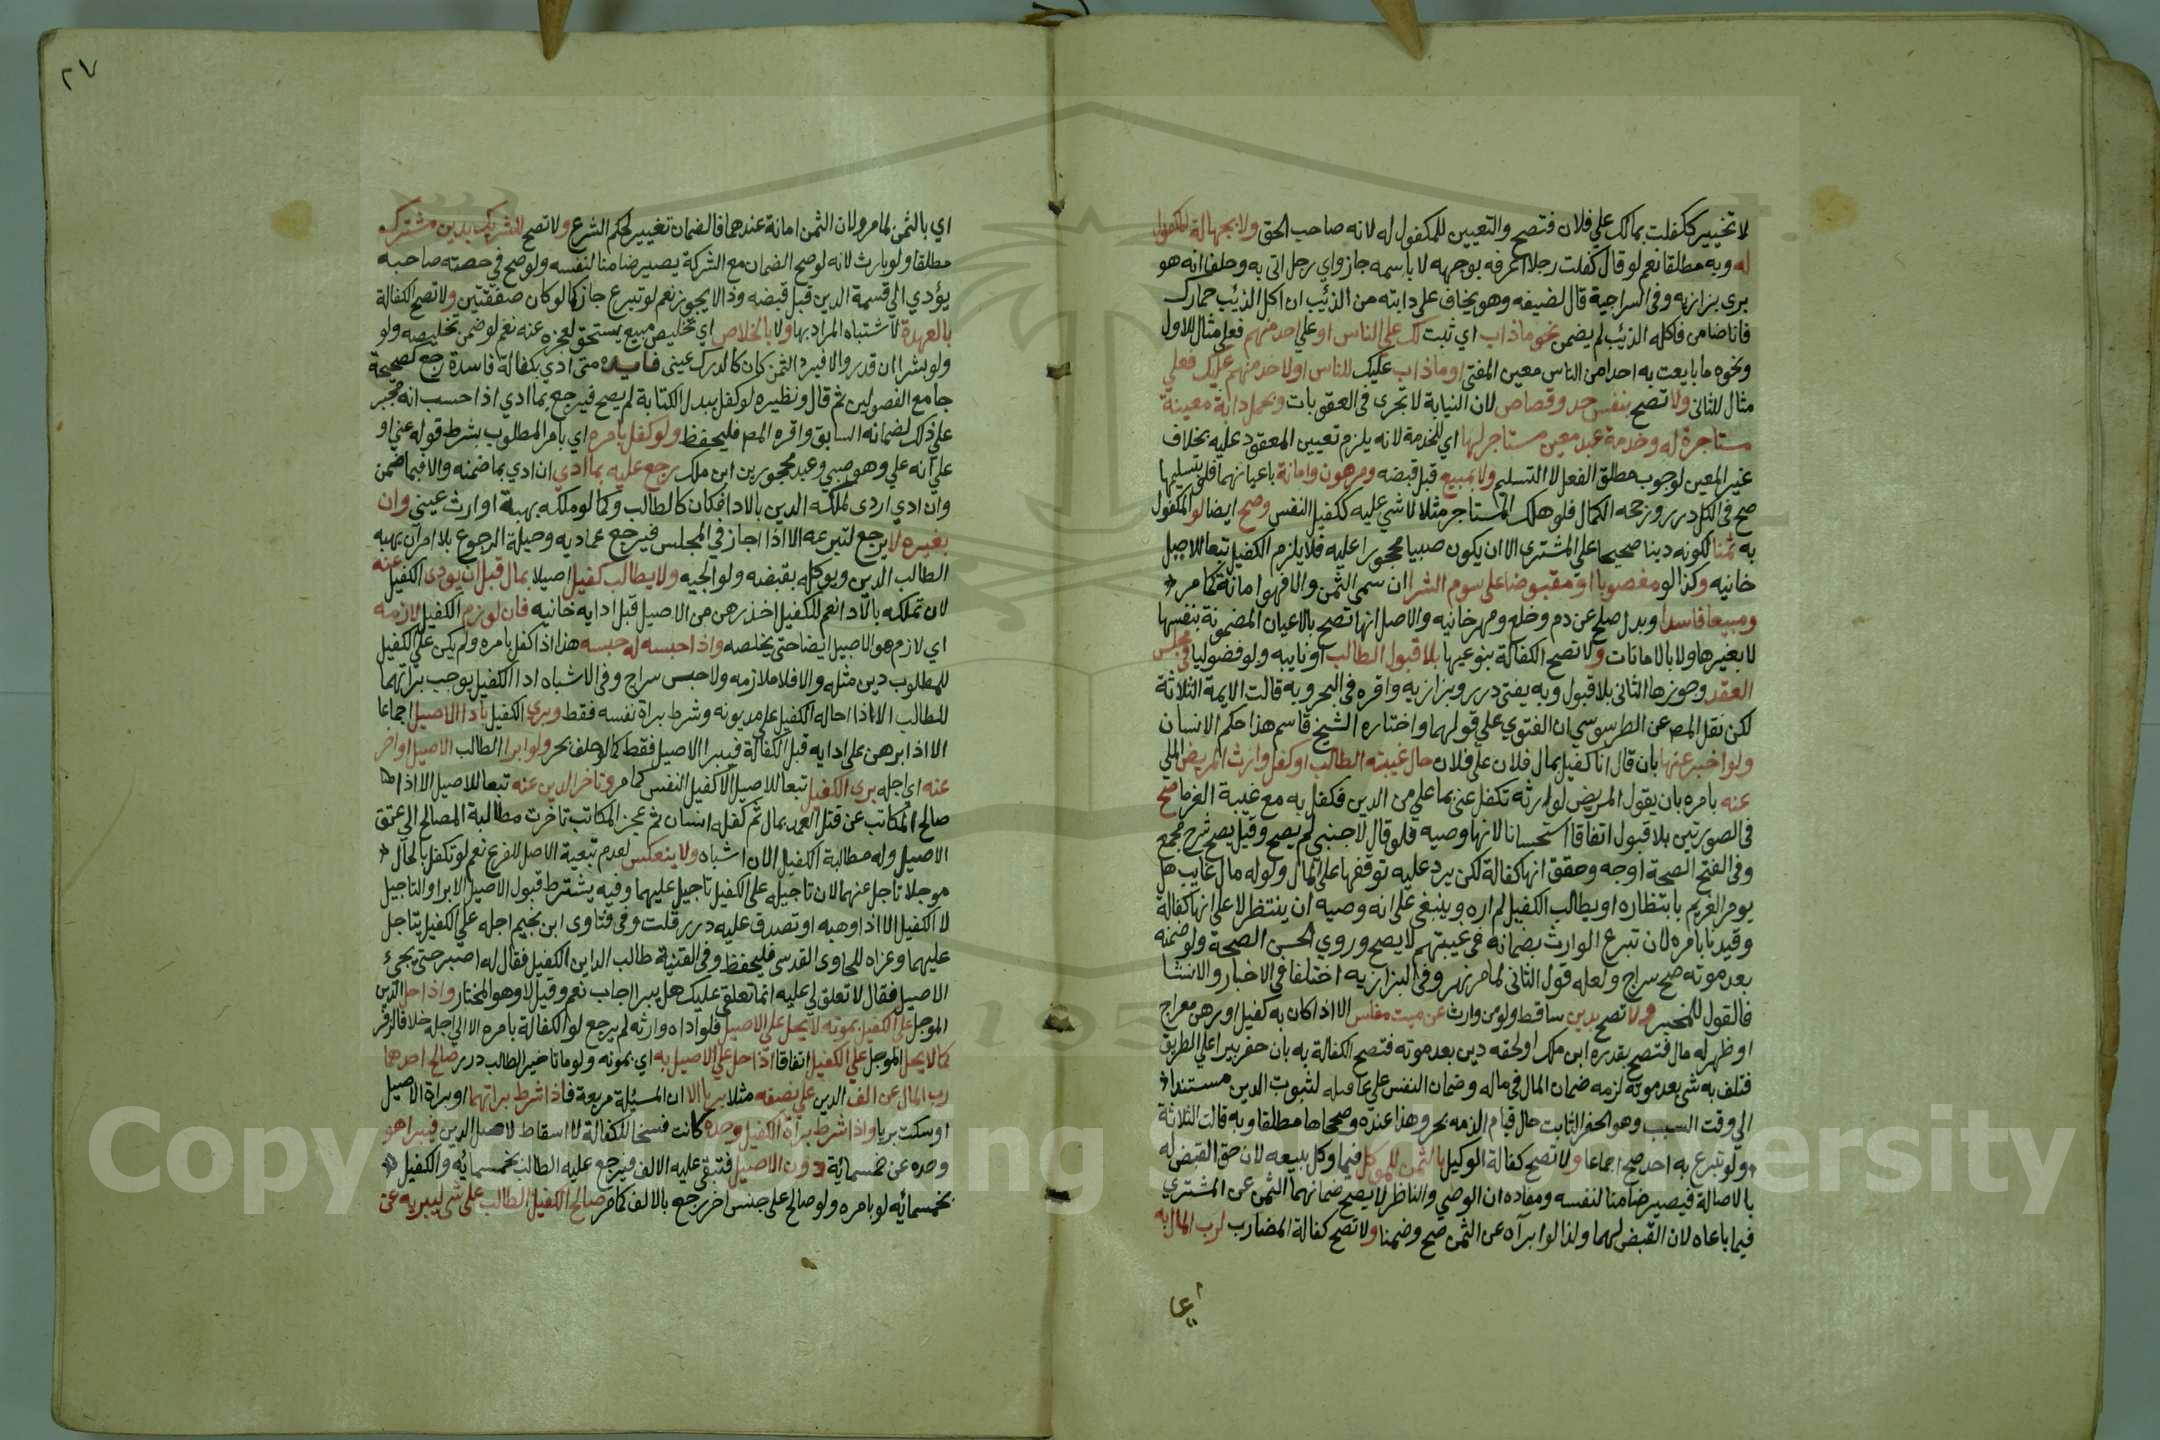 لا تخيير ككفلت بمالك علي فلان فتصح والتعيين للمكفول له لانه صاحب الحق ولا بجهالة المكفول
له وبه مطلقا نعم لو قال كفلت رجلا اعرفه بوجهه لا باسمه جاز واي رجل اتى به وحلف انه هو
بري بزازيه وفى السراجية قال لضيفه وهو يخاف على دابته من الذئب ان اكل الذئب حمارك
فانا ضامن فاكله الذئب لم يضمن نحو ما ذاب اي ثبت لك على الناس او علي احد منهم فعلي مثال للاول
ونحوه ما بايعت به احدا من الناس معين المفتى او ما ذاب عليك للناس او لاحد منهم عليك فعلي
مثال للثانى ولا تصح بنفس حد وقصاص لان النيابة لا تجرى فى العقوبات وبحمل دابة معينة
مستاجرة له وخدمة عبد معين مستاجر لها اي للخدمة لانه يلزم تعيين المعقود عليه بخلاف
غير المعين لوجوب مطلق الفعل لا التسليم ولا بمبيع قبل قبضه ومرهون وامانة باعيانهما فلو بتسليمها
صح فى الكل درر ورجحه الكمال فلو هلك المستاجر مثلا لا شي عليه ككفيل النفس وصح ايضا لو المكفول
به ثمنا لكونه دينا صحيحا علي المشترى الا ان يكون صبيا محجورا عليه فلا يلزم الكفيل تبعا للاصيل
خانيه وكذا لو مغصوبا او مقبوضا على سوم الشرا ان سمى الثمن والا فهو امانة كما مر
ومبيعا فاسدا وبدل صلح عن دم وخلع ومهر خانيه والاصل انها تصح بالاعيان المضمونة بنفسها
لا بغيرها ولا بالامانات ولا تصح الكفالة بنوعيها بلا قبول الطالب او نايبه ولو فضوليا فى مجلس
العقد وجوزها الثانى بلا قبول وبه يفتى درر وبزازيه واقره فى البحر وبه قالت الايمة الثلاثة
لكن نقل المص عن الطرسوسي ان الفتوي علي قولهما واختاره الشيخ قاسم هذا حكم الانسان
ولو اخبر عنها بان قال انا كفيل بمال فلان علي فلان حال غيبته الطالب او كفل وارث المريض الملي
عنه بامره بان يقول المريض لوارثه تكفل عنى بما علي من الدين فكفل به مع غيبة الغرما صح
فى الصورتين بلا قبول اتفاقا استحسانا لانها وصيه فلو قال لاجنبي لم يصح وقيل يصح شرح مجمع
وفى الفتح الصحة اوجه وحقق انها كفالة لكن يرد عليه توقفها على المال ولو له مال غايب هل
يومر الغريم بانتظاره او يطالب الكفيل لم اره وينبغى على انه وصيه ان ينتظر لا على انها كفالة
وقيدنا بامره لان تبرع الوارث بضمانه فى غيبتهم لا يصح وروي الحسن الصحة ولو ضمنه
بعد موته صح سراج ولعله قول الثانى لما مر نهر وفى البزازيه اختلفا فى الاخبار والانشا
فالقول للمخبر ولا تصح بدين ساقط ولو من وارث عن ميت مفلس الا اذا كان به كفيل او رهن معراج
او ظهر له مال فتصح بقدره ابن ملك او لحقه دين بعد موته فتصح الكفالة به بان حفر بيرا علي الطريق
فتلف به شى بعد موته لزمه ضمان المال فى ماله وضمان النفس على عاقلته لثبوت الدين مستندا
الي وقت السبب وهو الحفر الثابت حال قيام الذمه بحر وهذا عنده وصححاها مطلقا وبه قالت الثلاثة
ولو تبرع به احد صح اجماعا ولا تصح كفالة الوكيل بالثمن للموكل فيما وكل ببيعه لان حق القبض له
بالاصالة فيصير ضامنا لنفسه ومفاده ان الوصي والناظر لا يصح ضمانهما الثمن عن المشترى
فيما باعاه لان القبض لهما ولذا لو ابراه عن الثمن صح وضمنا ولا تصح كفالة المضارب لرب المال به
٢٧
اي بالثمن لما مر ولان الثمن امانة عندهما فالضمان تغيير لحكم الشرع ولا تصح للشريك بدين مشترك
مطلقا ولو بارث لانه لو صح الضمان مع الشركة يصير ضامنا لنفسه ولو صح في حصته صاحبه
يؤدي الي قسمة الدين قبل قبضه وذا لا يجوز نعم لو تبرع جاز كما لو كان صفقتين ولا تصح الكفالة
بالعهدة لاشتباه المراد بها ولا بالخلاص اي تخليص مبيع يستحق لعجزه عنه نعم لو ضمن تخليصه ولو
ولو بشرا ان قدر والا فيرد الثمن كان كالدرك عينى فايده متى ادي بكفالة فاسدة رجع كصحيحة
جامع الفصولين ثم قال ونظيره لو كفل ببدل الكتابة لم يصح فيرجع بما ادي اذا حسب انه مجبر
علي ذلك لضمانه السابق واقره المص فليحفظ ولو كفل بامره اي بامر المطلوب بشرط قوله عني او
علي انه علي وهو صبي وعبد محجورين ابن ملك رجع عليه بما ادي ان ادي بما ضمنه والا فبما ضمن
وان ادي اردى لملكه الدين بالادا فكان كالطالب وكما لو ملكه بهبة او ارث عينى وان
بغيره لا يرجع لتبرعه الا اذا اجاز في المجلس فيرجع عماديه وحيلة الرجوع بلا امر ان يهبه
الطالب الدين ويوكله بقبضه ولوالجيه ولا يطالب كفيل اصيلا بمال قبل ان يودى الكفيل عنه
لان تملكه بالادا نعم للكفيل اخذ رهن من الاصيل قبل ادايه خانيه فان لوزم الكفيل لازمه
اي لازم هو الاصيل ايضا حتى يخلصه واذا حبسه له حبسه هذا اذا كفل بامره ولم يكن علي الكفيل
للمطلوب دين مثله والا فلا ملازمه ولا حبس سراج وفى الاشباه ادا الكفيل يوجب براتهما
للطالب الا اذا احاله الكفيل على مديونه وشرط براة نفسه فقط وبري الكفيل بادا الاصيل اجماعا
الا اذا برهن على ادايه قبل الكفالة فيبرا الاصيل فقط كما لو حلف بحر ولو ابرا الطالب الاصيل او اخر
عنه اي اجله بري الكفيل تبعا للاصيل الا كفيل النفس كما مر وتاخر الدين عنه تبعا للاصيل الا اذا
صالح المكاتب عن قتل العمد بمال ثم كفله انسان ثم عجز المكاتب تاخرت مطالبة المصالح الي عتق
الاصيل وله مطالبة الكفيل الان اشباه ولا ينعكس لعدم تبعية الاصل للفرع نعم لو تكفل بالحال
موجلا تاجل عنهما لان تاجيله على الكفيل تاجيل عليهما وفيه يشترط قبول الاصيل الابرا والتاجيل
لا الكفيل الا اذا وهبه او تصدق عليه درر قلت وفى فتاوى ابن نجيم اجله علي الكفيل يتاجل
عليهما وعزاه للحاوى القدسى فليحفظ وفى القنية طالب الداين الكفيل فقال له اصبر حتى يجيء
الاصيل فقال لا تعلق لي عليه انما تعلقي عليك هل يبرا اجاب نعم وقيل لا وهو المختار واذا حل الدين
الموجل على الكفيل بموته لا يحل على الاصيل فلو اداه وارثه لم يرجع لو الكفالة بامره الا الي اجله خلافا لزفر
كما لا يحل الموجل علي الكفيل اتفاقا اذا حل علي الاصيل به اي بموته ولو ماتا خير الطالب درر صالح احدهما
رب المال عن الف الدين علي نصفه مثلا بريا الا ان المسئلة مربعة فاذا شرط براتهما او براة الاصيل
او سكت بريا واذا شرط براة الكفيل وحده كانت فسخا للكفالة لا اسقاط لاصل الدين فيبرا هو
وحده عن خمسمائة دون الاصيل فتبقى عليه الالف فيرجع عليه الطالب بخمسمائه والكفيل
بخمسمائه لو بامره ولو صالح على جنس اخر رجع بالالف كما مر صالح الكفيل الطالب على شى ليبريه عن
Copyright King Saud University
195